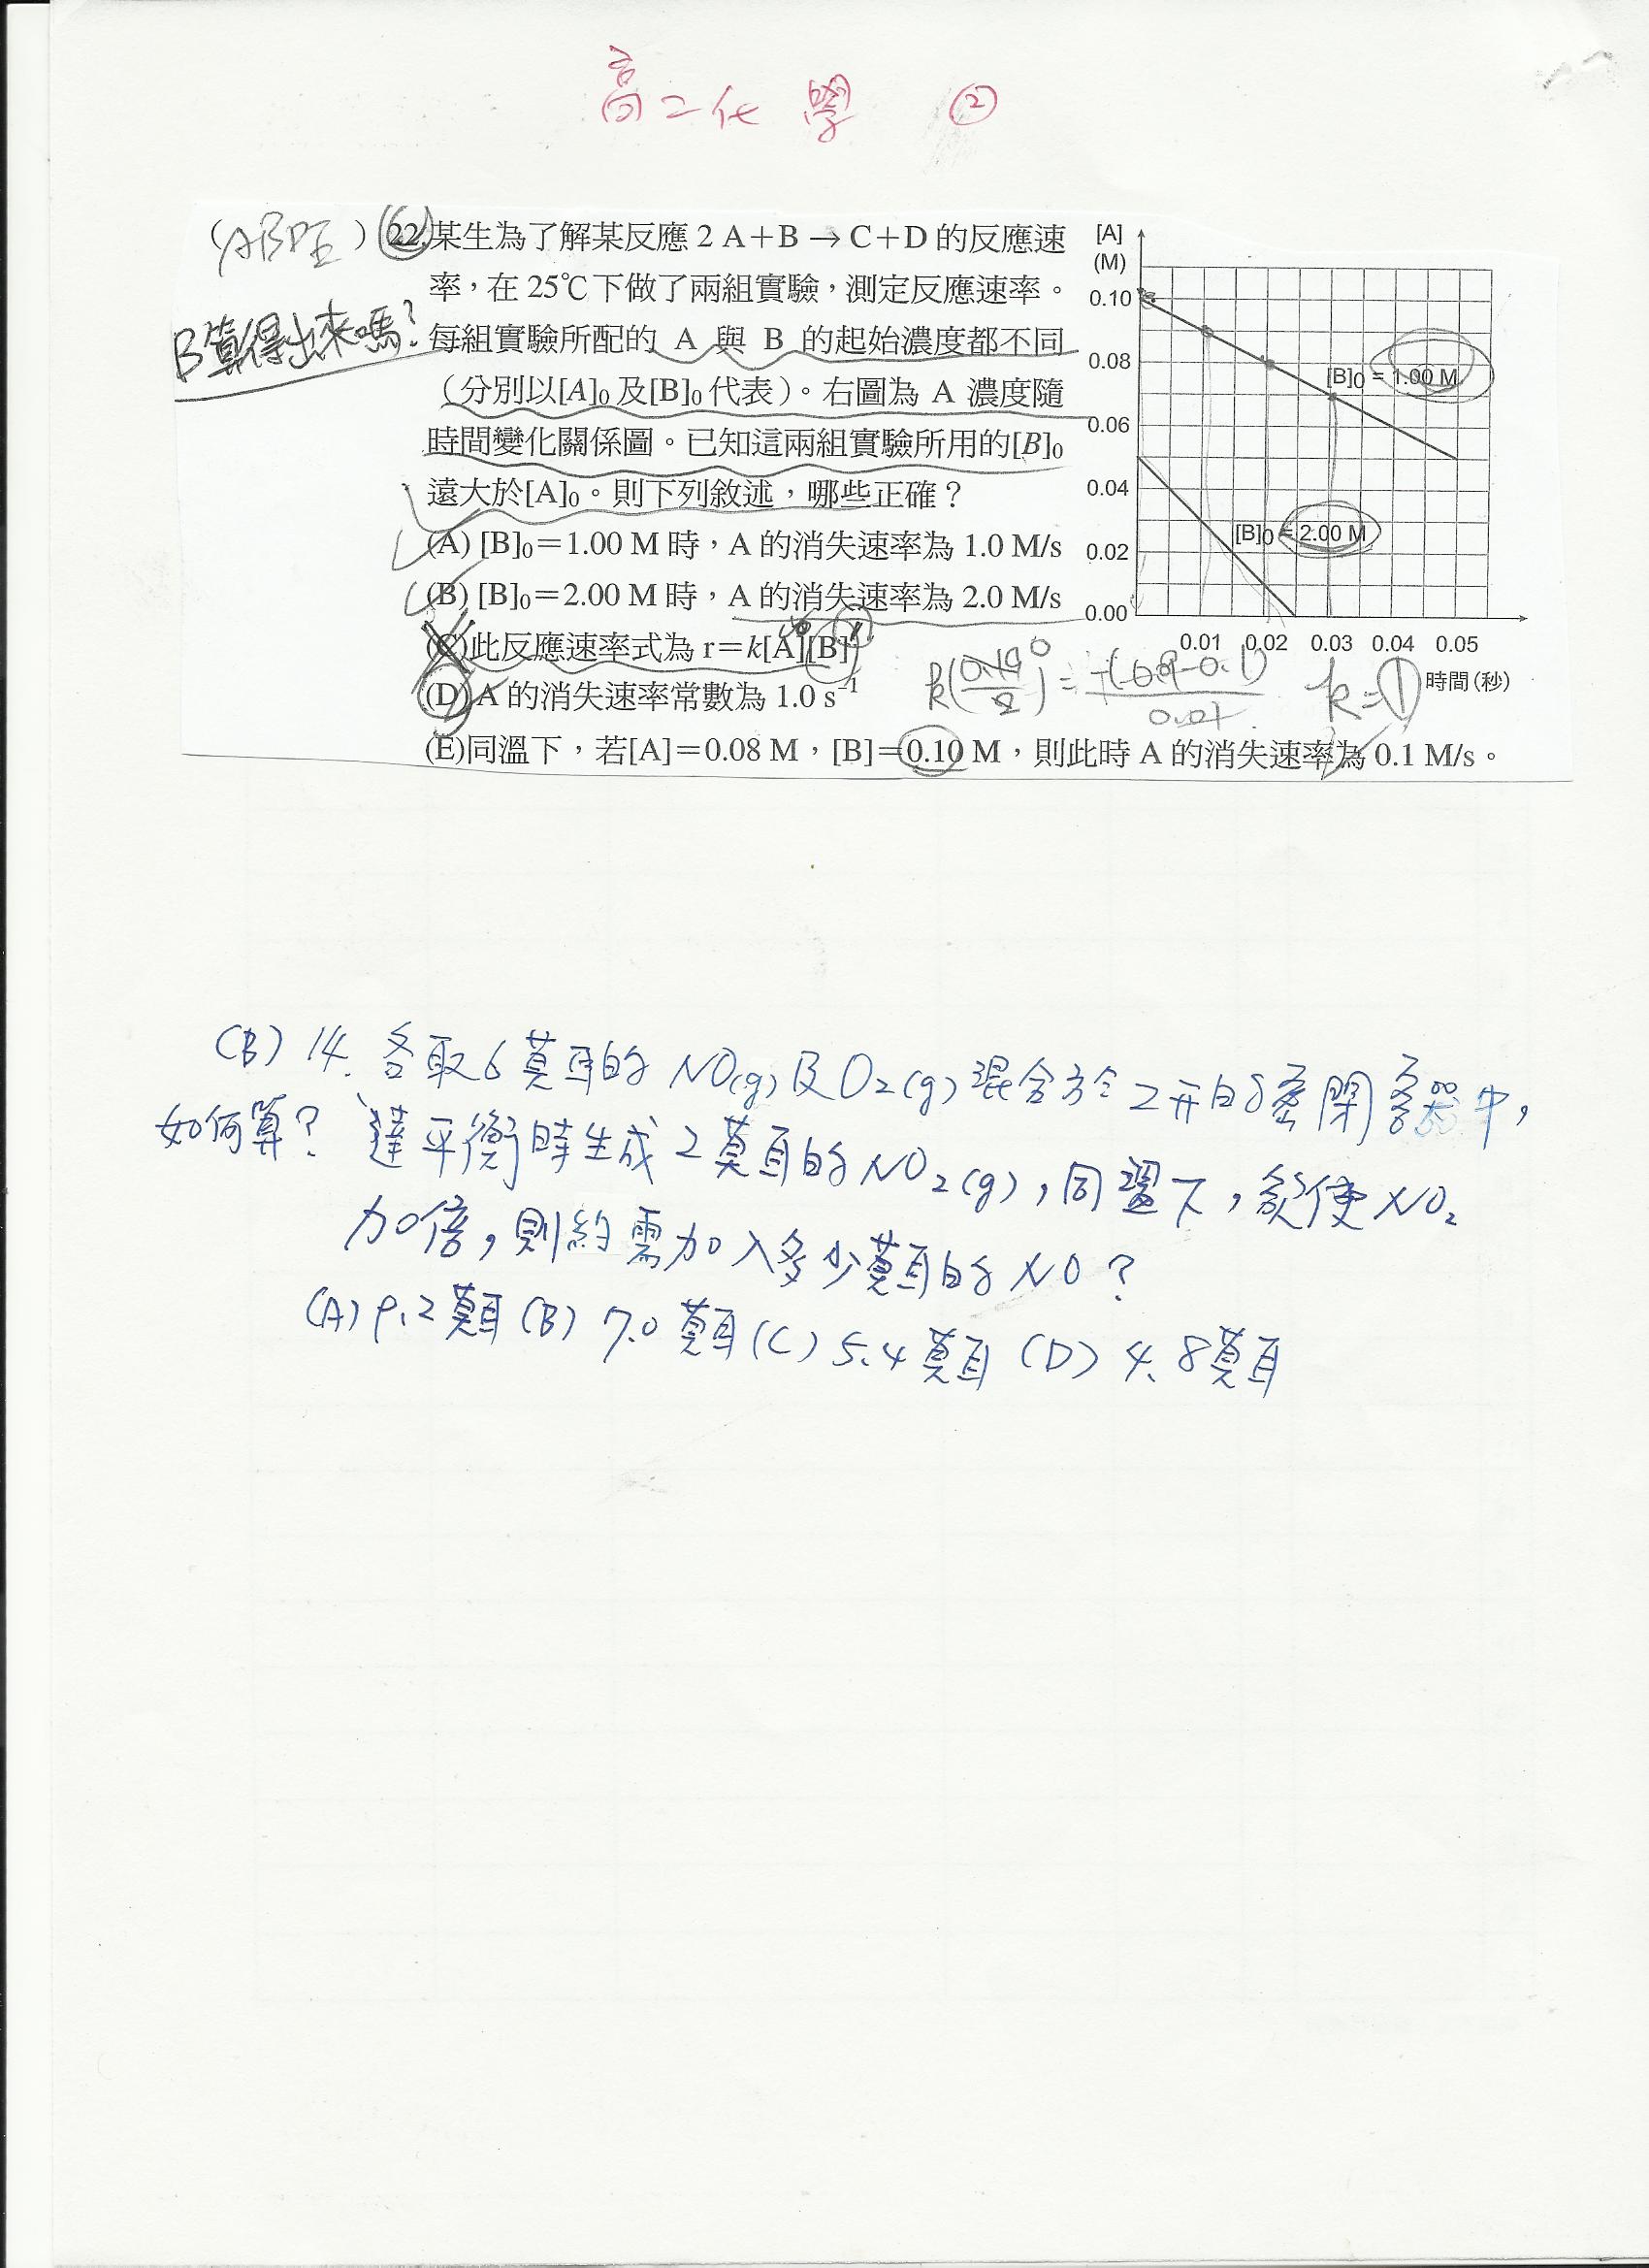 高二化學 ②
(ABDE) 22.某生為了解某反應 2 A+B → C+D 的反應速
率,在 25℃下做了兩組實驗,測定反應速率。
B算得出來嗎?
每組實驗所配的 A 與 B 的起始濃度都不同
(分別以[A]0 及[B]0 代表)。右圖為 A 濃度隨
時間變化關係圖。已知這兩組實驗所用的[B]0
遠大於[A]0。則下列敘述,哪些正確?
(A) [B]0=1.00 M 時,A 的消失速率為 1.0 M/s
(B) [B]0=2.00 M 時,A 的消失速率為 2.0 M/s
(C)此反應速率式為 r=k[A][B]
(D) A 的消失速率常數為 1.0 s⁻¹
(E)同溫下,若[A]=0.08 M,[B]=0.10 M,則此時 A 的消失速率為 0.1 M/s。
[A]
(M)
0.10
0.08
0.06
0.04
0.02
0.00
[B]0 = 1.00 M
[B]0 = 2.00 M
0.01 0.02 0.03 0.04 0.05
時間(秒)
k=1
(B) 14. 各取6莫耳的 NO(g)及O2(g)混合於2升的密閉容器中,
如何算?
達平衡時生成2莫耳的NO2(g),同溫下,欲使NO2
加倍,則約需加入多少莫耳的NO?
(A) 9.2莫耳 (B) 7.0莫耳 (C) 5.4莫耳 (D) 4.8莫耳